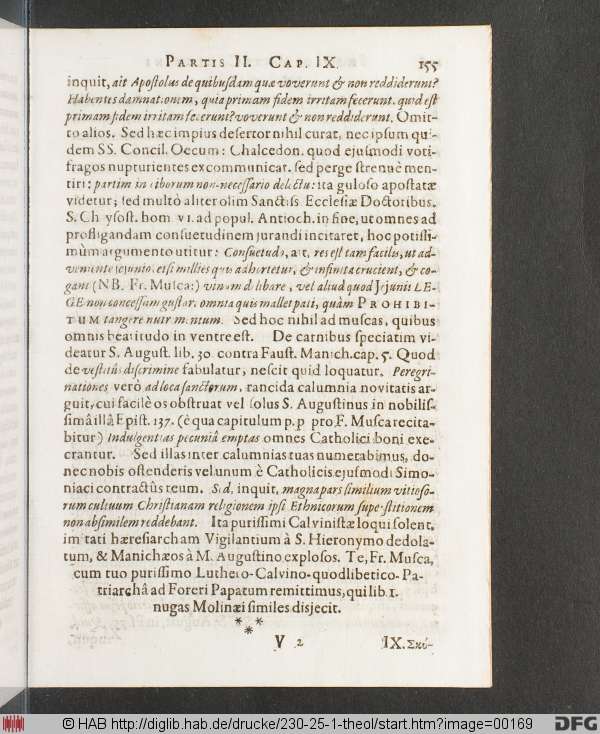 PARTIS II. CAP. IX. 155
inquit, ait Apostolus de quibusdam quæ voverunt & non reddiderunt?
Habentes damnationem, quia primam fidem irritam fecerunt. quid est
primam fidem irritam fecerunt? voverunt & non reddiderunt. Omit-
to alios. Sed hæc impius desertor nihil curat, nec ipsum qui-
dem SS. Concil. Oecum: Chalcedon. quod ejusmodi voti-
fragos nupturientes excommunicat. sed perge strenuè men-
tiri: partim in ciborum non-necessario delectu: ita guloso apostatæ
videtur; sed multò aliter olim Sanctiss. Ecclesiæ Doctoribus.
S. Chrysost. hom VI. ad popul. Antioch. in fine, ut omnes ad
profligandam consuetudinem jurandi incitaret, hoc potissi-
mùm argumento utitur: Consuetudo, ait, res est tam facilis, ut ad-
veniente jejunio, etsi millies quis adhortetur, & infinita crucient, & co-
gant (NB. Fr. Musca:) vinum delibare, vel aliud quod Jejunii LE-
GE non concessum gustare, omnia quis mallet pati, quàm PROHIBI-
TUM tangere nutrimentum. Sed hoc nihil ad muscas, quibus
omnis beatitudo in ventre est. De carnibus speciatim vi-
deatur S. August. lib. 30. contra Faust. Manich. cap. 5. Quod
de vestitûs discrimine fabulatur, nescit quid loquatur. Peregri-
nationes verò ad loca sanctorum, rancida calumnia novitatis ar-
guit, cui facilè os obstruat vel solus S. Augustinus in nobilis-
simâ illâ Epist. 137. (è qua capitulum p. p pro F. Musca recita-
bitur) Indulgentias pecuniâ emptas omnes Catholici boni exe-
crantur. Sed illas inter calumnias tuas numerabimus, do-
nec nobis ostenderis vel unum è Catholicis ejusmodi Simo-
niaci contractûs reum. Sed, inquit, magna pars similium vitioso-
rum cultuum Christianam religionem ipsi Ethnicorum superstitionem
non absimilem reddebant. Ita purissimi Calvinistæ loqui solent,
imitati hæresiarcham Vigilantium à S. Hieronymo dedola-
tum, & Manichæos à M. Augustino explosos. Te, Fr. Musca,
cum tuo purissimo Luthero-Calvino-quodlibetico-Pa-
triarchâ ad Foreri Papatum remittimus, qui lib. 1.
nugas Molinæi similes disjecit.
***
V 2 IX. Σκύ-
© HAB http://diglib.hab.de/drucke/230-25-1-theol/start.htm?image=00169
DFG